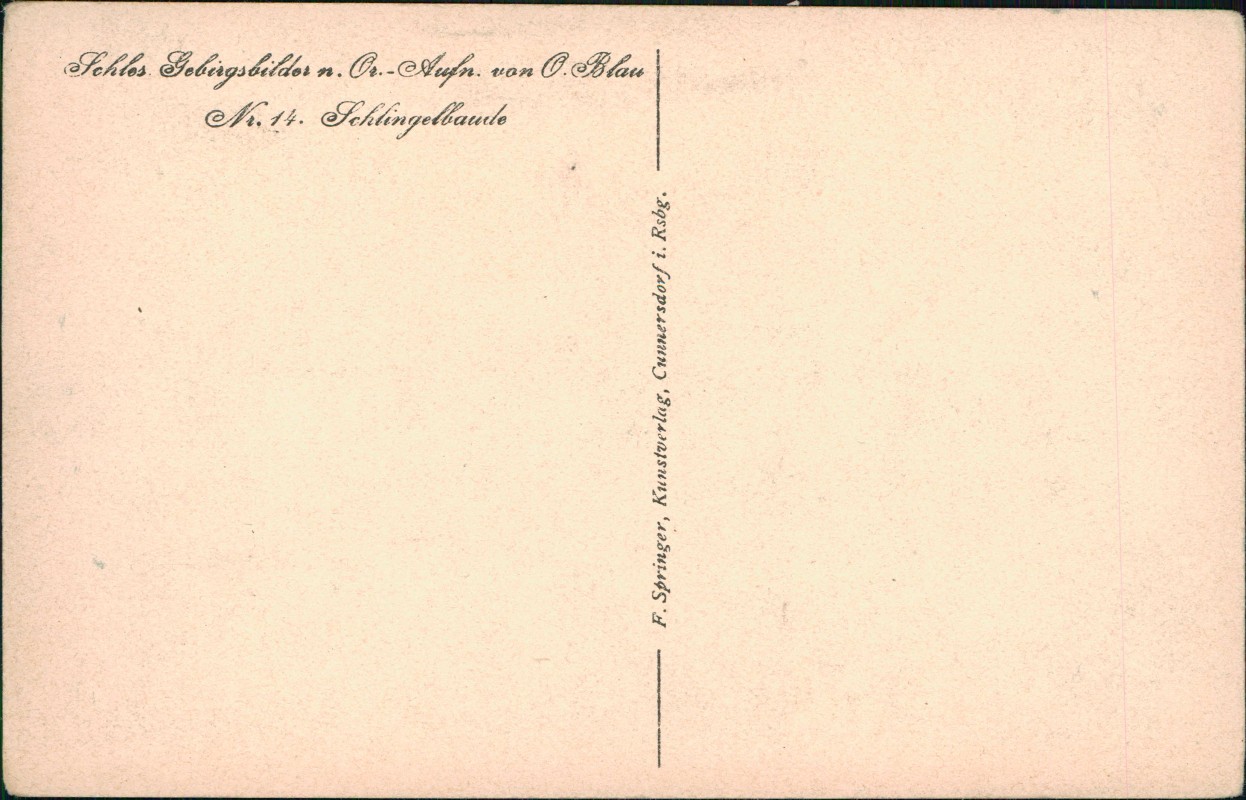 Schles. Gebirgsbilder n. Or.-Aufn. von O. Blau
Nr. 14. Schlingelbaude
F. Springer, Kunstverlag, Cunnersdorf i. Rsbg.